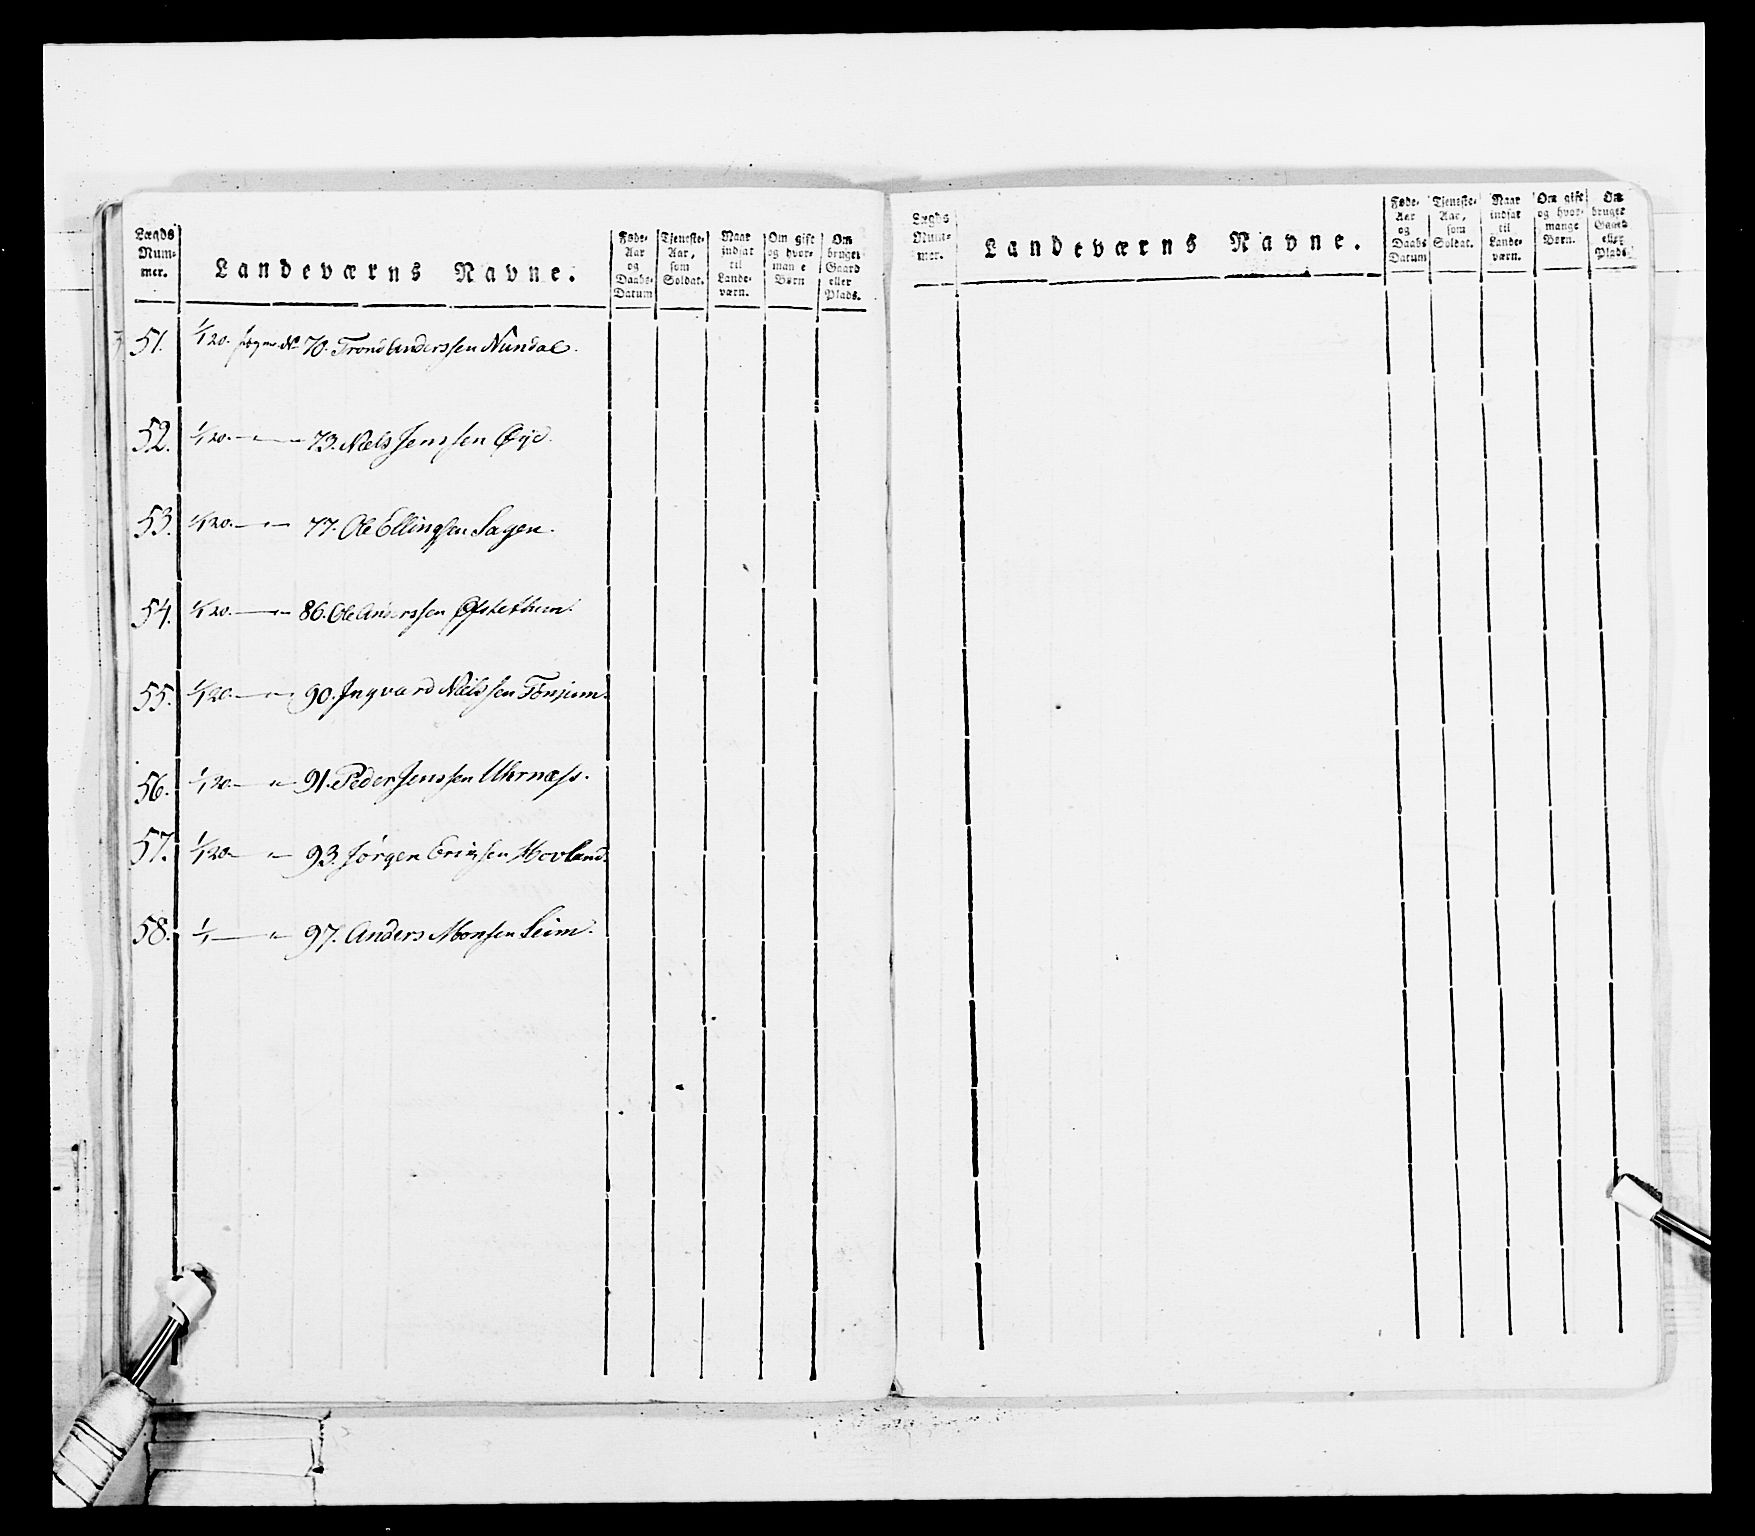 Lægds Num- mer.
Landeværns Navne.
Føde- Aar og Daabs- Datum
Tjeneste- Aar, som Soldat.
Naar indsat til Lande- værn.
Om gift og hvor- man e Børn
Om bruger Gaard eller Plads.
51. 1/1 20. No 70. Trond Anderssen Nundal.
52. 1/1 20. — " — 73. Niels Jenssen Øye.
53. 1/1 20. — " — 77. Ole Ellingsen Sagen.
54. 1/1 20. — " — 86. Ole Anderssen Øfstethun.
55. 1/1 20. — " — 90. Ingvard Nielssen Tønjum.
56. 1/1 20. — " — 91. Peder Jenssen Uhrnæss.
57. 1/1 20. — " — 93. Jørgen Erichsen Hovland.
58. 1/1 — " — 97. Anders Monsen Seim.
Lægds Num- mer.
Landeværns Navne.
Føde- Aar og Daabs Datum
Tjeneste- Aar, som Soldat.
Naar indsat til Lande- værn.
Om gift og hvor- mange Børn.
Om bruger Gaard eller Plads.